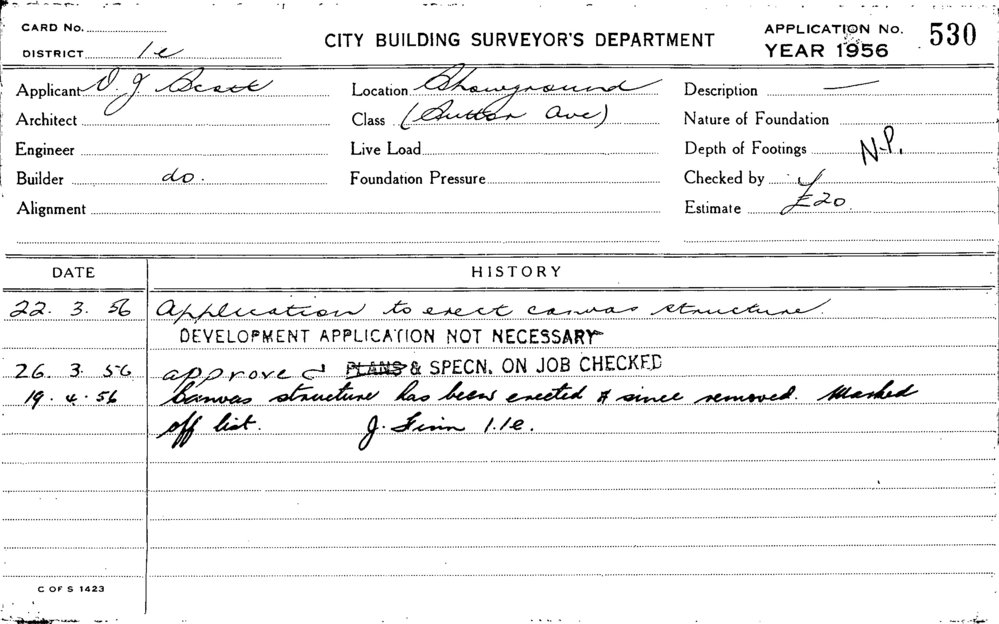 CARD No.
DISTRICT 1e
CITY BUILDING SURVEYOR'S DEPARTMENT
APPLICATION No. 530
YEAR 1956
Applicant D. J. Scott
Architect
Engineer
Builder do.
Alignment
Location Showground
Class (Sutton Ave)
Live Load
Foundation Pressure
Description —
Nature of Foundation
Depth of Footings N.P.
Checked by
Estimate £20.
DATE HISTORY
22. 3. 56 Application to erect canvas structure.
DEVELOPMENT APPLICATION NOT NECESSARY
26. 3. 56 approved PLANS & SPECN. ON JOB CHECKED
19. 4. 56 Canvas structure has been erected & since removed. Marked
off list. J. Finn 1.1e.
C OF S 1423